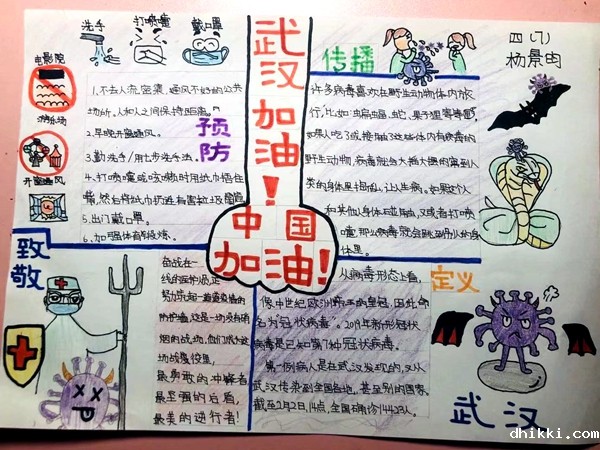 洗手
打喷嚏
戴口罩
电影院
游乐场
开窗通风
武汉加油!
中国
加油!
预防
1.不去人流密集,通风不好的公共
场所。人和人之间保持距离。
2.早晚开窗通风。
3.勤洗手/用七步洗手法。
4.打喷嚏或咳嗽时用纸巾捂住
嘴,然后将纸巾扔进有害垃圾
5.出门戴口罩。
6.加强体育锻炼。
传播
四(7)
杨景
许多病毒喜欢在野生动物体内旅
行,比如:蝙蝠、蛇、果子狸等等
如果人吃了或接触了这些体内有病毒的
野生动物,病毒就会大摇大摆的窜到人
类的身体里捣乱,让人生病。如果这个人
和其他人身体碰触,又或者打喷
嚏,那么病毒就会跳到别人的身
体里。
致敬
奋战在一
线的医护人员,正
努力筑起一道道疫情的
防护墙,这是一场没有硝
烟的战场,他们成为这
场战疫役里,
最勇敢的冲锋者
最坚强的后盾,
最美的逆行者!
定义
从病毒形态上看,
像中世纪欧洲帝王的皇冠,因此命
名为"冠状病毒"。2019年新形冠状
病毒是已知第7种冠状病毒。
第一例病人是在武汉发现的,又从
武汉传染到全国各地,甚至别的国家,
截至2月2日,14点,全国确诊14423人。
武汉
dhikki.com